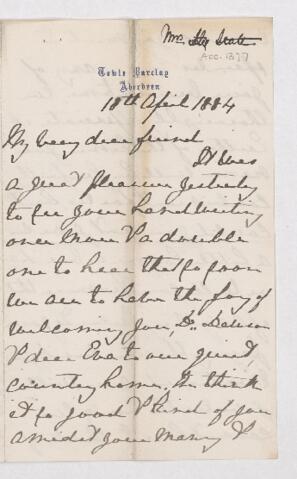 Mrs
Acc. 1377
Towie Barclay
Aberdeen
18th April 1884
My very dear friend
It was
a great pleasure yesterday
to see your handwriting
once more & a double
one to hear that so soon
we are to have the joy of
welcoming you, Dr. Dawson
& dear Eva to our quiet
country home. We think
it so good & kind of you
amidst your many &